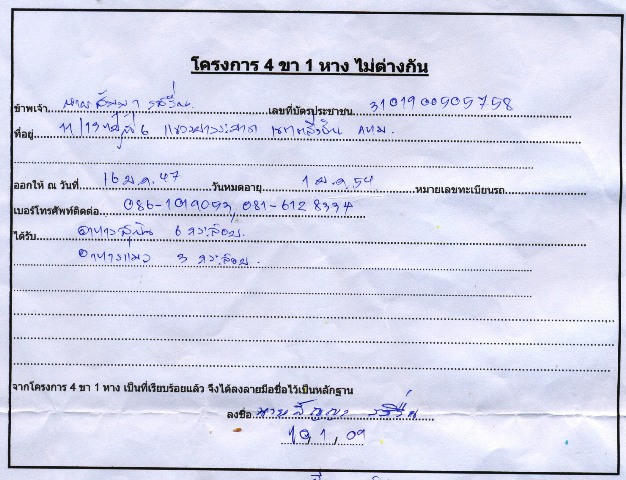 โครงการ 4 ขา 1 หาง ไม่ต่างกัน
ข้าพเจ้า นาย เลขที่บัตรประชาชน 3101900505758
ที่อยู่ 11/13 กทม.
ออกให้ ณ วันที่ 16 ม.ค. 47 วันหมดอายุ 1 ม.ค. 54 หมายเลขทะเบียนรถ
เบอร์โทรศัพท์ติดต่อ 086-1019053, 081-612 8334
ได้รับ อาหารสุนัข 6 กระสอบ
อาหารแมว 3 กระสอบ.
จากโครงการ 4 ขา 1 หาง เป็นที่เรียบร้อยแล้ว จึงได้ลงลายมือชื่อไว้เป็นหลักฐาน
ลงชื่อ นาย